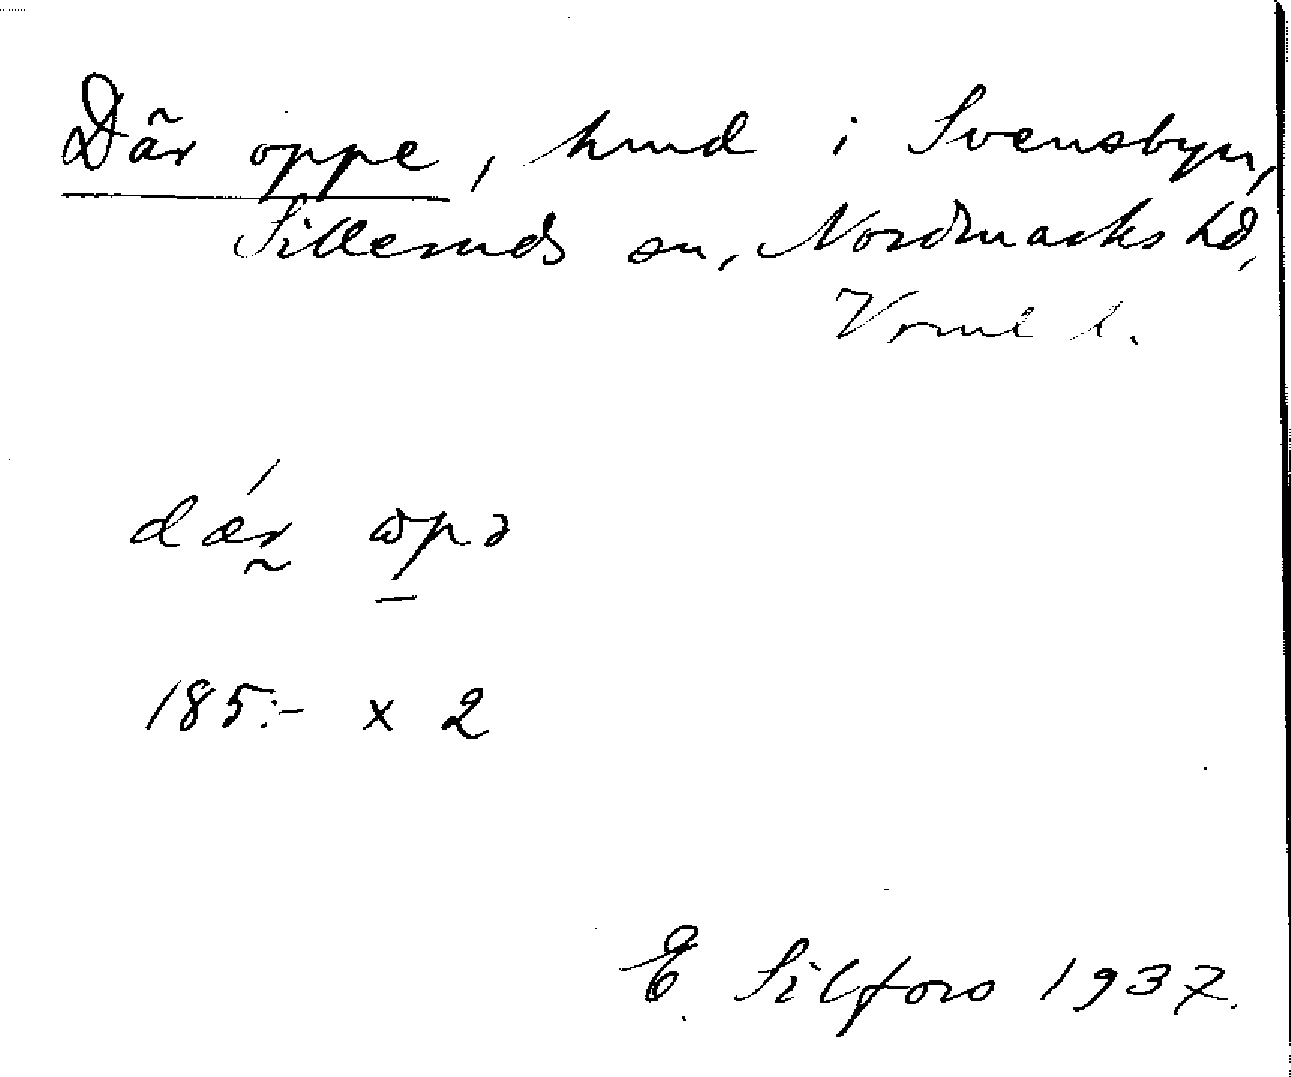 Där oppe, hmd i Svensbyn,
Silleruds sn, Nordmarks hd,
Vrml l.
dær ωpə
185:- x 2
E. Silfors 1937.